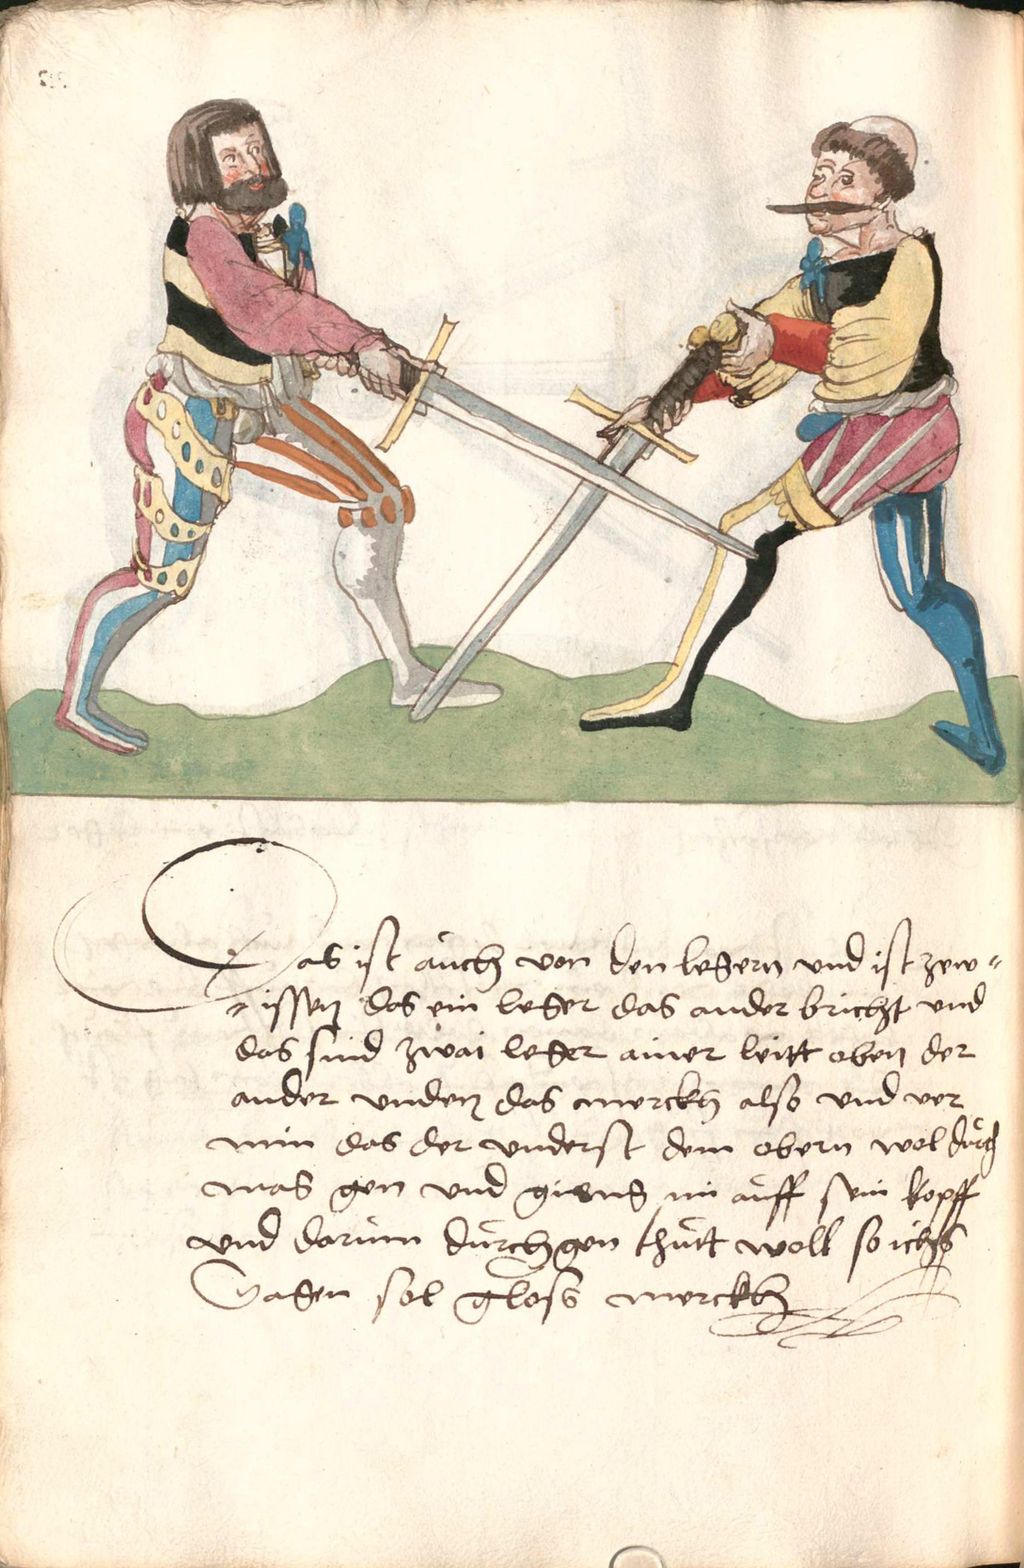 Das ist auch von den legern und ist zew=
=issen das ein leger das ander bricht und
das sind zwai leger ainer leitt oben der
ander unden das merckh also und ver
nim das der underst dem obern wol durch
mas gen und gieng im auff sein kopff
und darum durch gen thutt woll so ichs
sagen sol gloss merckh